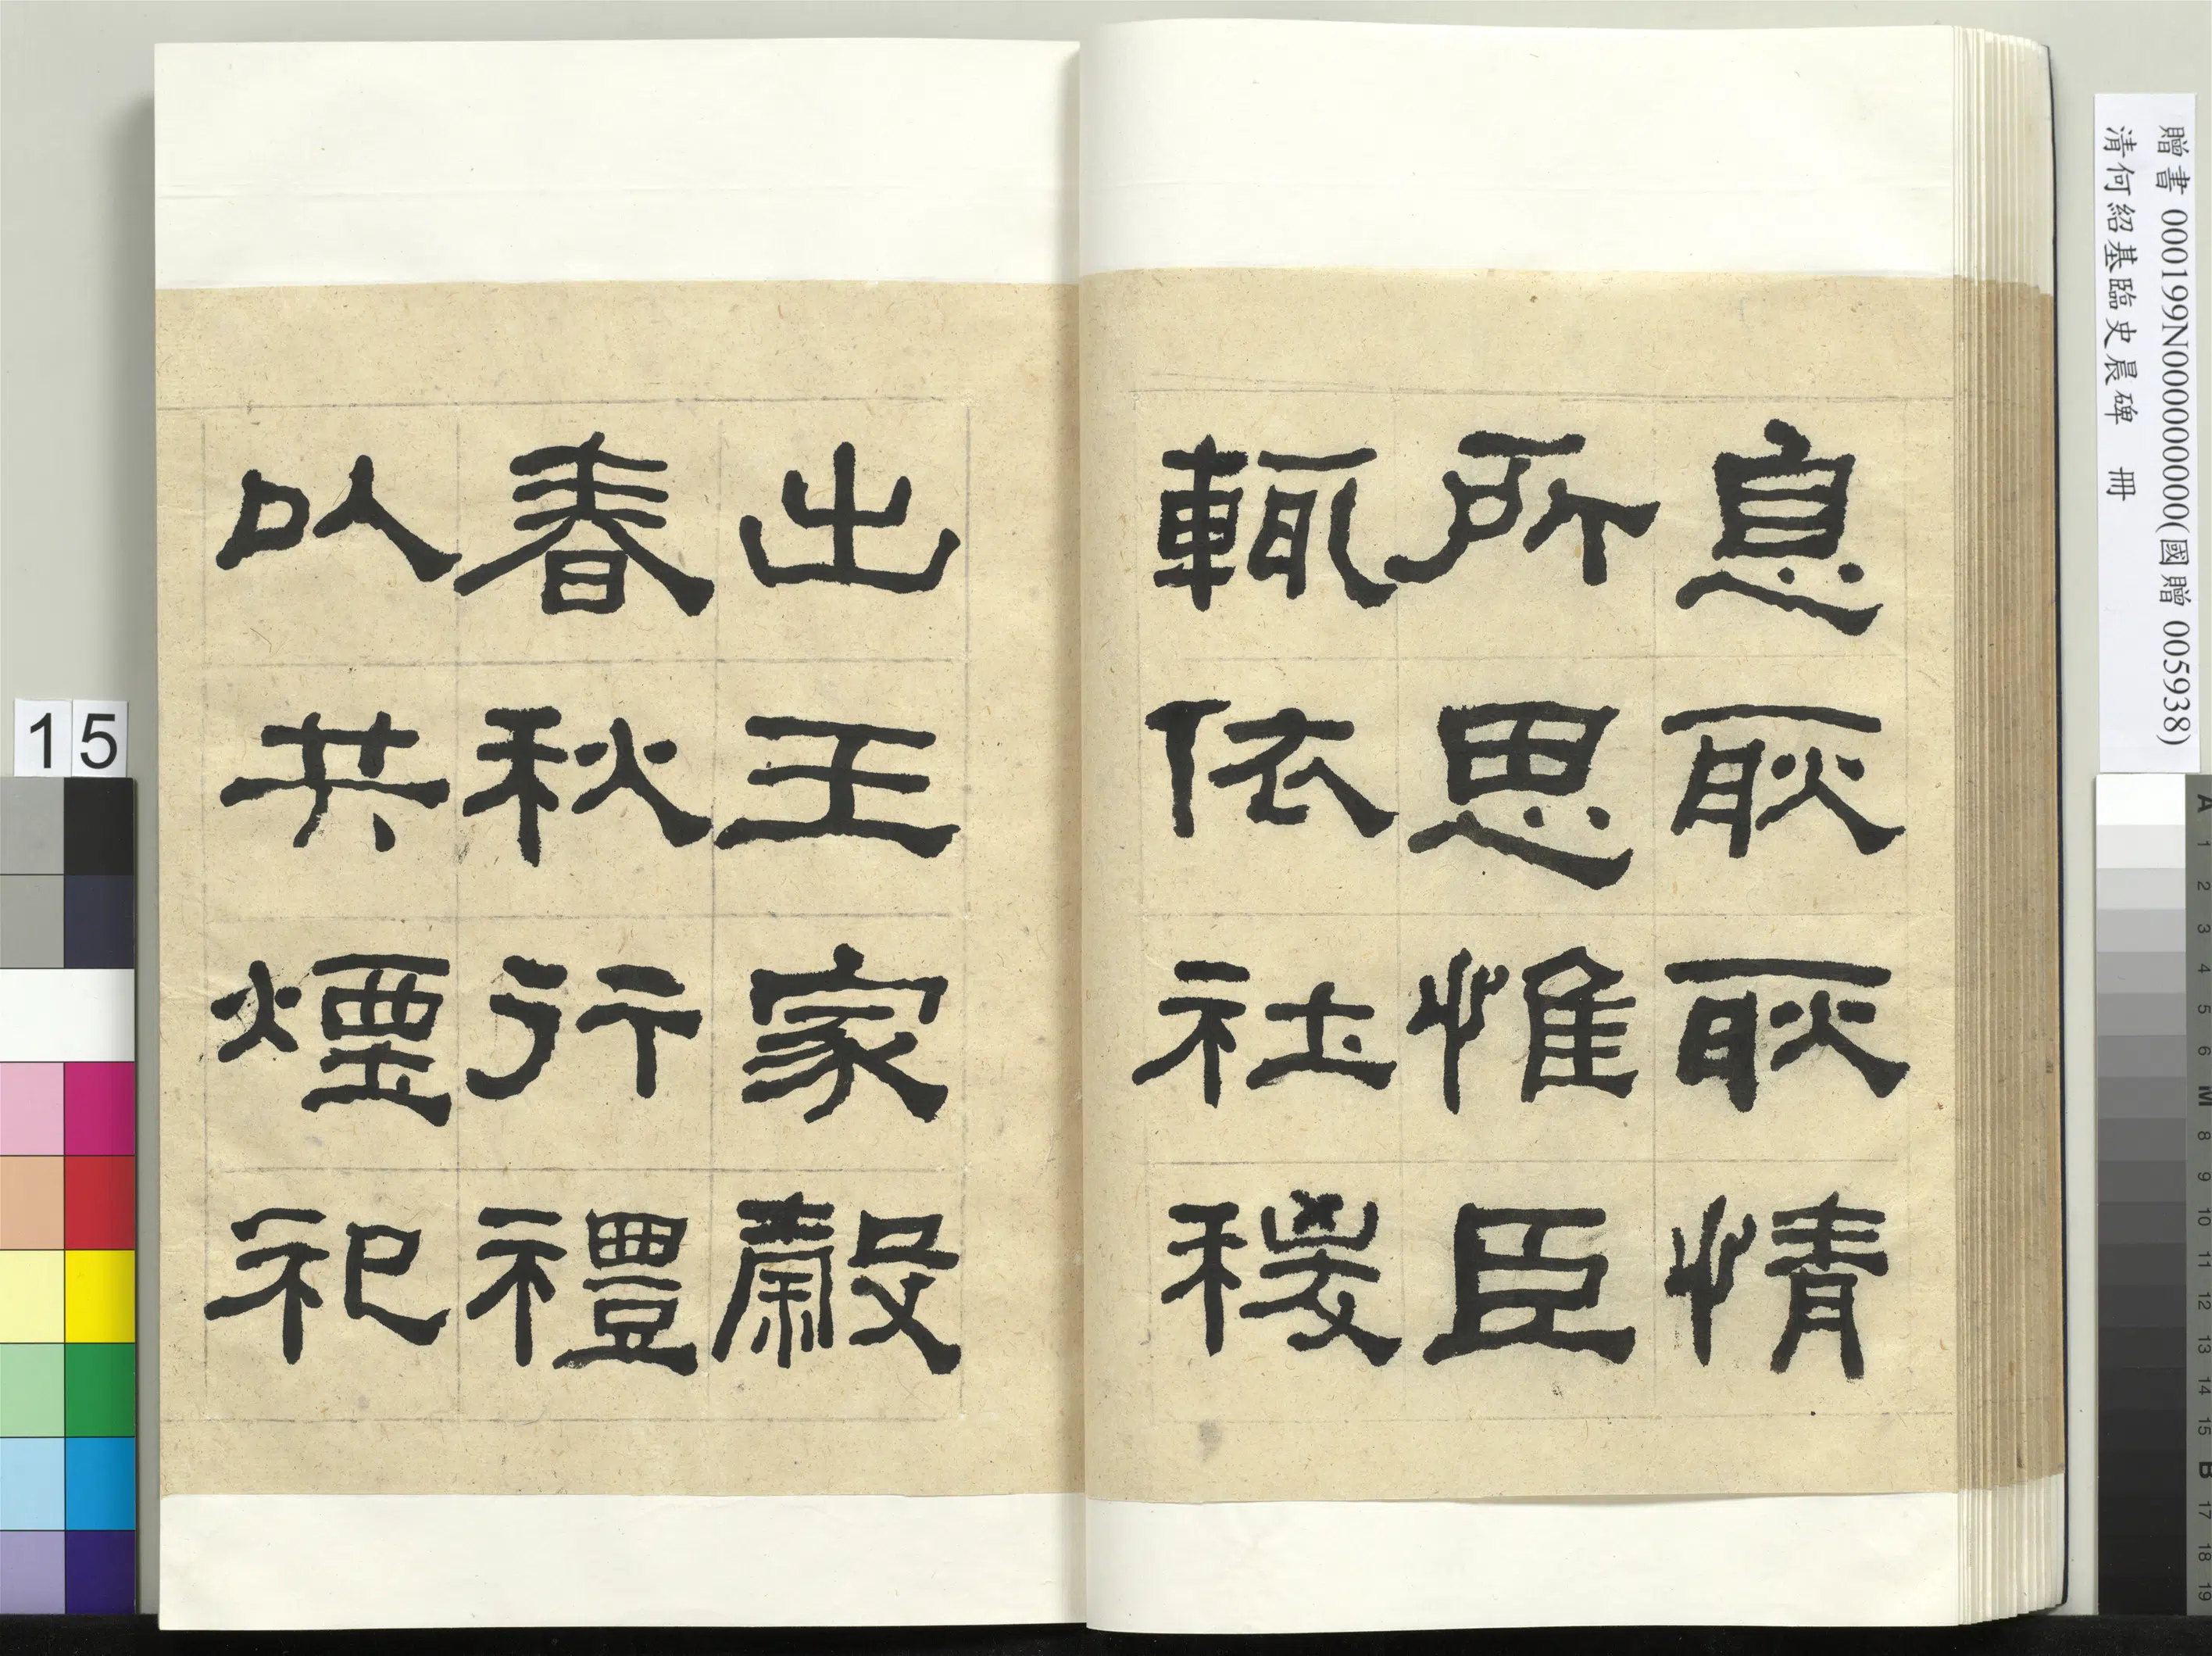 息耿耿情
所思惟臣
輒依社稷
出王家穀
春秋行禮
以共煙祀
贈書 000199N000000000(國贈 005938)
清何紹基臨史晨碑 冊
15
A 1 2 3 4 5 6 M 8 9 10 11 12 13 14 15 B 17 18 19